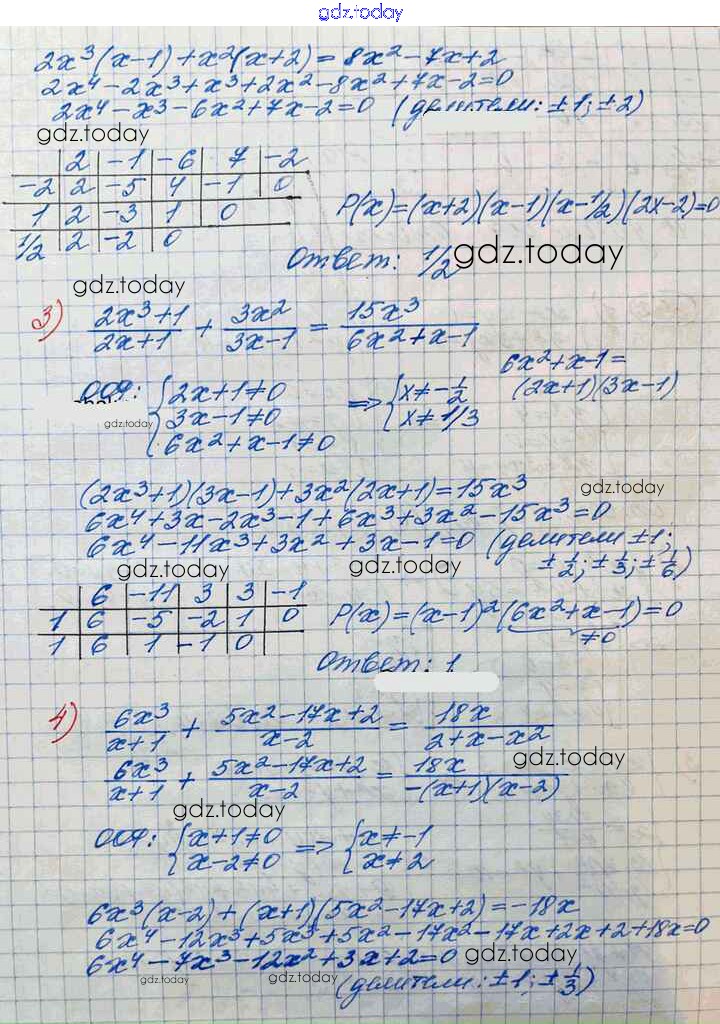 gdz.today
2x³(x-1)+x²(x+2)=8x²-7x+2
2x⁴-2x³+x³+2x²-8x²+7x-2=0
2x⁴-x³-6x²+7x-2=0 (делители: ±1; ±2)
gdz.today
2 -1 -6 7 -2
-2 2 -5 4 -1 0
1 2 -3 1 0
1/2 2 -2 0
P(x)=(x+2)(x-1)(x-1/2)(2x-2)=0
Ответ: 1/2
gdz.today
gdz.today
3) (2x³+1)/(2x+1) + 3x²/(3x-1) = 15x³/(6x²+x-1)
6x²+x-1=
(2x+1)(3x-1)
ООЧ: {2x+1≠0 => {x≠-1/2
3x-1≠0 x≠1/3
6x²+x-1≠0
gdz.today
(2x³+1)(3x-1)+3x²(2x+1)=15x³
gdz.today
6x⁴+3x-2x³-1+6x³+3x²-15x³=0
6x⁴-11x³+3x²+3x-1=0 (делители ±1;
±1/2; ±1/3; ±1/6)
gdz.today
gdz.today
6 -11 3 3 -1
1 6 -5 -2 1 0
1 6 1 -1 0
P(x)=(x-1)²(6x²+x-1)=0
≠0
Ответ: 1
4) 6x³/(x+1) + (5x²-17x+2)/(x-2) = 18x/(2+x-x²)
6x³/(x+1) + (5x²-17x+2)/(x-2) = 18x/(-(x+1)(x-2))
gdz.today
gdz.today
ООЧ: {x+1≠0 => {x≠-1
x-2≠0 x≠2
6x³(x-2)+(x+1)(5x²-17x+2)=-18x
6x⁴-12x³+5x³+5x²-17x²-17x+2x+2+18x=0
6x⁴-7x³-12x²+3x+2=0
gdz.today
(делители: ±1; ±1/3)
gdz.today
gdz.today